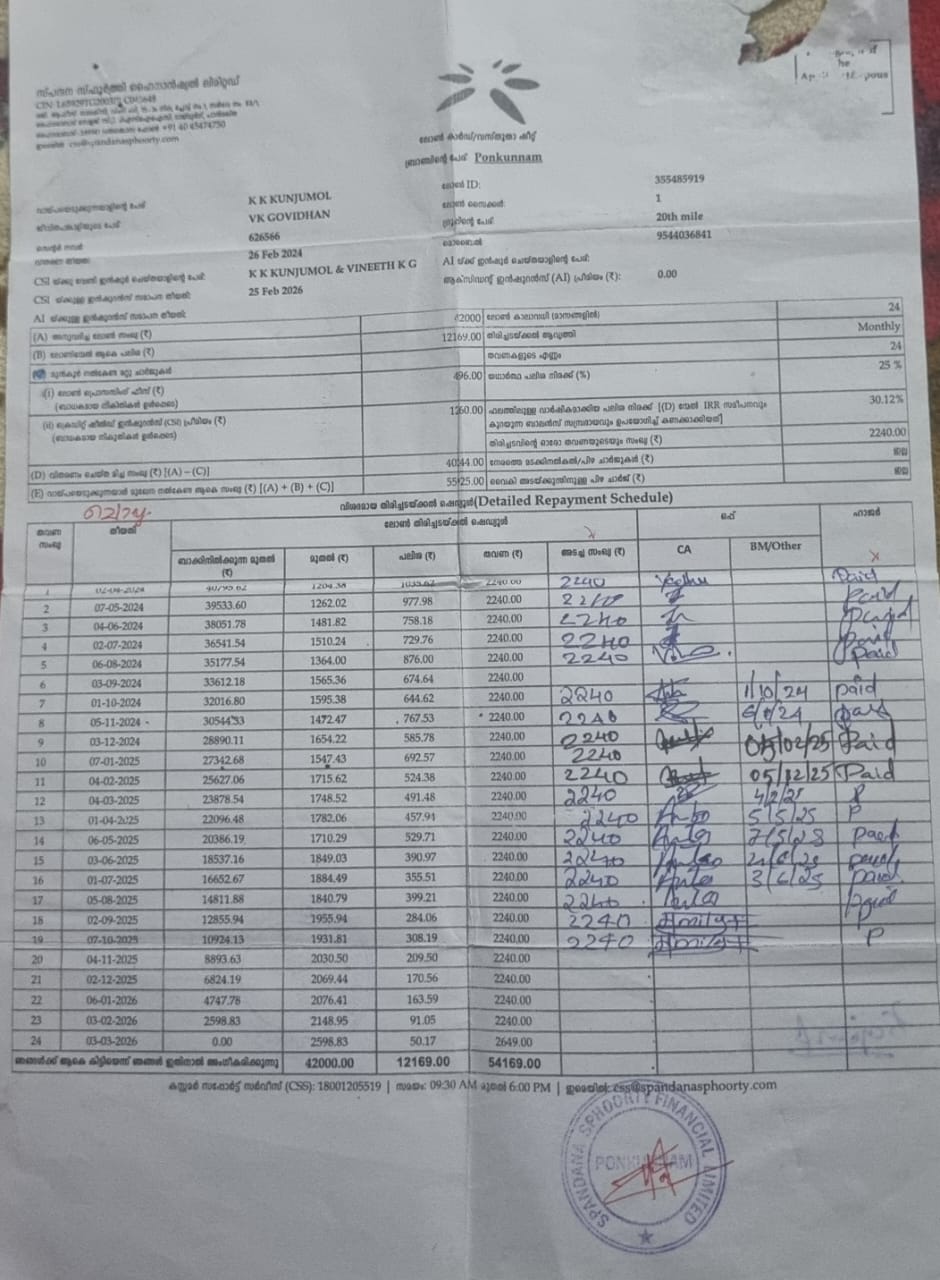 സ്പന്ദന സ്ഫൂർത്തി ഫൈനാൻഷ്യൽ ലിമിറ്റഡ്
+91 40 45474750
css@spandanasphoorty.com
ലോൺ കാർഡ്/വസ്തുതാ ഷീറ്റ്
ബ്രാഞ്ചിന്റെ പേര് Ponkunnam
K K KUNJUMOL ലോൺ ID: 355485919
VK GOVIDHAN ലോൺ സൈക്കിൾ: 1
626566 ഗ്രൂപ്പിന്റെ പേര് 20th mile
26 Feb 2024 മൊബൈൽ 9544036841
CSI K K KUNJUMOL & VINEETH K G AI യ്ക്ക് ഇൻഷുർ ചെയ്തയാളിന്റെ പേര്:
CSI യ്ക്കുള്ള ഇൻഷുറൻസ് സമാപന തീയതി: 25 Feb 2026 ആക്സിഡന്റ് ഇൻഷുറൻസ് (AI) പ്രീമിയം (₹): 0.00
AI യ്ക്കുള്ള ഇൻഷുറൻസ് സമാപന തീയതി:
(A) അനുവദിച്ച ലോൺ സംഖ്യ (₹) 42000 ലോൺ കാലാവധി (മാസങ്ങളിൽ) 24
(B) ലോണിന്മേൽ ആകെ പലിശ (₹) 12169.00 തിരിച്ചടയ്ക്കൽ ആവൃത്തി Monthly
തവണകളുടെ എണ്ണം 24
(i) ലോൺ പ്രോസസിങ് ഫീസ് (₹) 496.00 യഥാർത്ഥ പലിശ നിരക്ക് (%) 25 %
(ബാധകമായ നികുതികൾ ഉൾപ്പെടെ)
(ii) ക്രെഡിറ്റ് ഷീൽഡ് ഇൻഷുറൻസ് (CSI) പ്രീമിയം (₹) 1260.00 30.12%
(ബാധകമായ നികുതികൾ ഉൾപ്പെടെ)
തിരിച്ചടവിന്റെ ഓരോ തവണയുടെയും സംഖ്യ (₹) 2240.00
(D) വിതരണം ചെയ്ത മിച്ച സംഖ്യ (₹) [(A) – (C)] 40244.00
(E) [(A) + (B) + (C)] 55925.00
വിശദമായ തിരിച്ചടയ്ക്കൽ ഷെഡ്യൂൾ(Detailed Repayment Schedule)
തവണ സംഖ്യ തീയതി ലോൺ തിരിച്ചടയ്ക്കൽ ഷെഡ്യൂൾ ഒപ്പ് ഹാജർ
ബാക്കിനിൽക്കുന്ന മുതൽ (₹) മുതൽ (₹) പലിശ (₹) തവണ (₹) അടച്ച സംഖ്യ (₹) CA BM/Other
1 02-04-2024 40795.62 1204.38 1035.62 2240.00 2240 Paid
2 07-05-2024 39533.60 1262.02 977.98 2240.00 2240 Paid
3 04-06-2024 38051.78 1481.82 758.18 2240.00 2240 Paid
4 02-07-2024 36541.54 1510.24 729.76 2240.00 2240 Paid
5 06-08-2024 35177.54 1364.00 876.00 2240.00 2240 Paid
6 03-09-2024 33612.18 1565.36 674.64 2240.00
7 01-10-2024 32016.80 1595.38 644.62 2240.00 2240 1/10/24 Paid
8 05-11-2024 30544.33 1472.47 767.53 2240.00 2240 Paid
9 03-12-2024 28890.11 1654.22 585.78 2240.00 2240 05/02/25 Paid
10 07-01-2025 27342.68 1547.43 692.57 2240.00 2240
11 04-02-2025 25627.06 1715.62 524.38 2240.00 2240 05/12/25 Paid
12 04-03-2025 23878.54 1748.52 491.48 2240.00 2240 P
13 01-04-2025 22096.48 1782.06 457.94 2240.00 2240 5/5/25 P
14 06-05-2025 20386.19 1710.29 529.71 2240.00 2240 Paid
15 03-06-2025 18537.16 1849.03 390.97 2240.00 2240 paid
16 01-07-2025 16652.67 1884.49 355.51 2240.00 2240 paid
17 05-08-2025 14811.88 1840.79 399.21 2240.00 2240 paid
18 02-09-2025 12855.94 1955.94 284.06 2240.00 2240
19 07-10-2025 10924.13 1931.81 308.19 2240.00 2240 P
20 04-11-2025 8893.63 2030.50 209.50 2240.00
21 02-12-2025 6824.19 2069.44 170.56 2240.00
22 06-01-2026 4747.78 2076.41 163.59 2240.00
23 03-02-2026 2598.83 2148.95 91.05 2240.00
24 03-03-2026 0.00 2598.83 50.17 2649.00
ഞങ്ങൾക്ക് ആകെ കിട്ടിയെന്ന് ഞങ്ങൾ ഇതിനാൽ അംഗീകരിക്കുന്നു 42000.00 12169.00 54169.00
കസ്റ്റമർ സപ്പോർട്ട് സർവീസ് (CSS): 18001205519 | സമയം: 09:30 AM മുതൽ 6:00 PM | ഇമെയിൽ: css@spandanasphoorty.com
SPANDANA SPHOORTY FINANCIAL LIMITED
PONKUNNAM